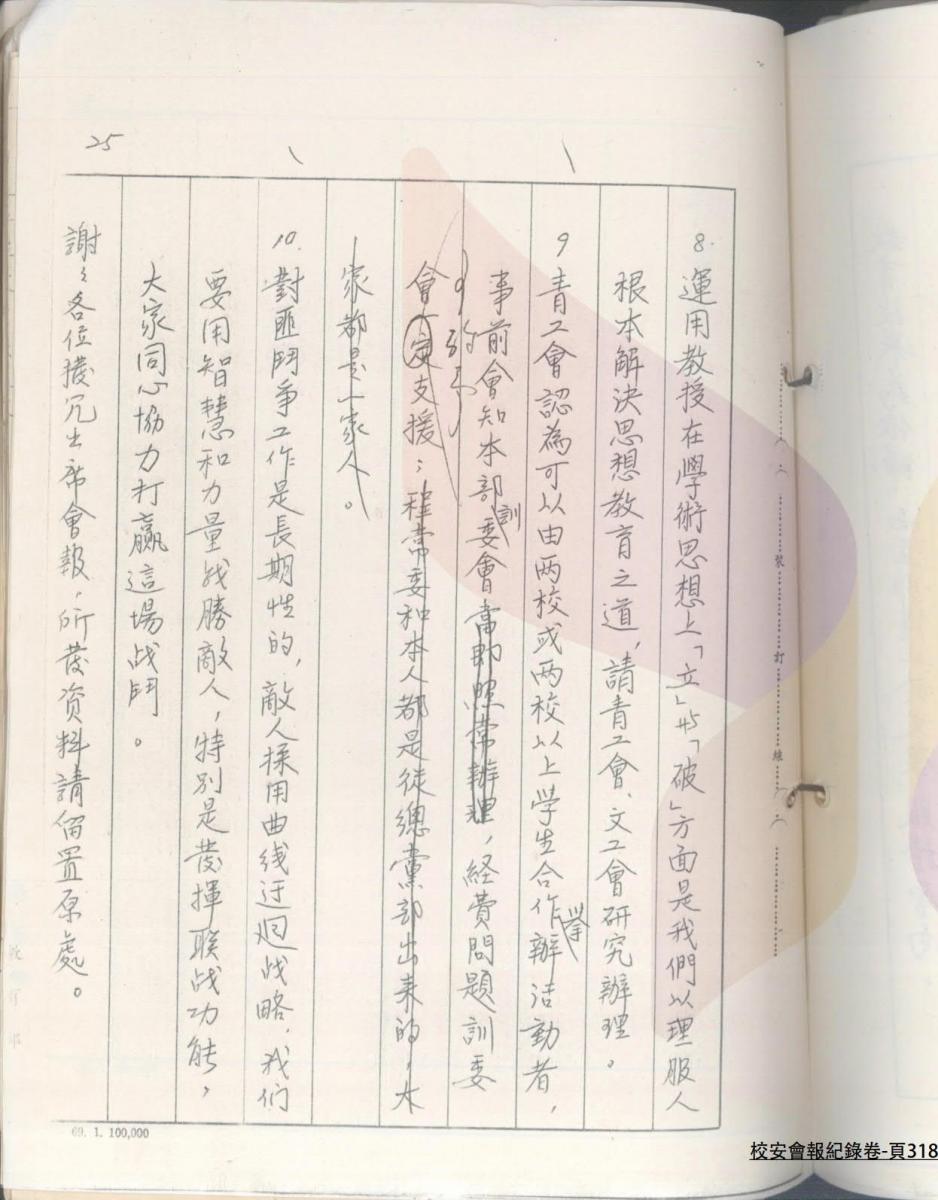 25
8. 運用教授在學術思想上「立」與「破」方面是我們以理服人
根本解決思想教育之道，請青工會、文工會研究辦理。
9 青工會認為可以由两校或两校以上学生合作舉辦活動者，
事前會知本部訓委會當即照常辦理，経費問題訓委
會一定支援；程常委和本人都是從總黨部出来的，大
家都是一家人。
10. 對匪鬥争工作是長期性的，敵人採用曲线迂迴战略，我们
要用智慧和力量战勝敵人，特別是發揮联战功能，
大家同心協力打贏這場战鬥。
謝々各位撥冗出席會報，所發资料請留置原處。
69. 1. 100,000
裝
訂
線
校安會報紀錄卷-頁318